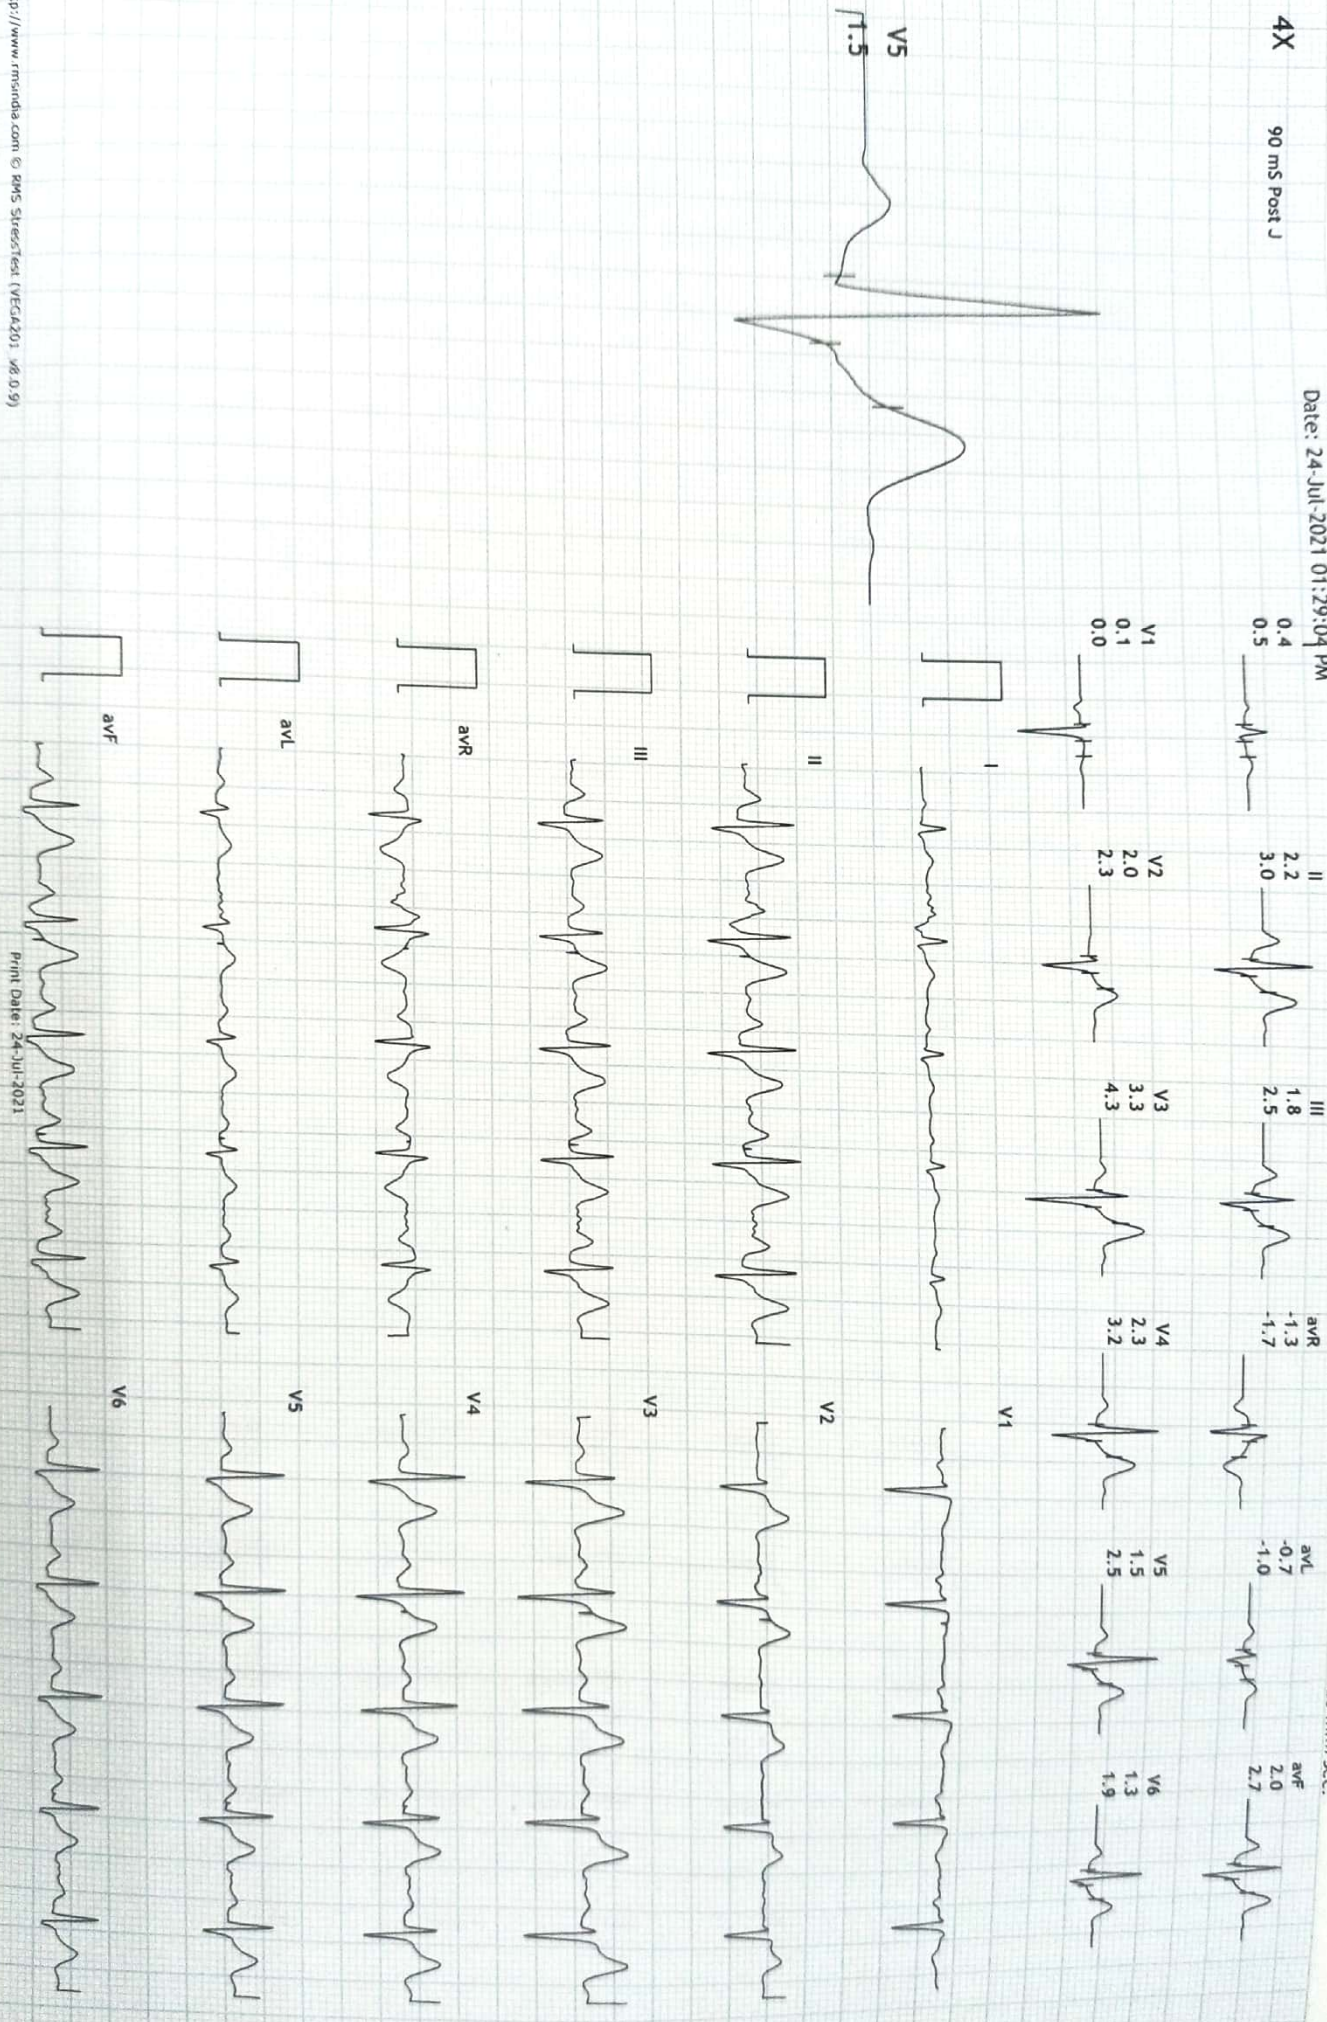 Date: 24-Jul-2021 01:29:04 PM
4X 90 mS Post J
I
0.4
0.5
II
2.2
3.0
III
1.8
2.5
avR
-1.3
-1.7
avL
-0.7
-1.0
avF
2.0
2.7
V1
0.1
0.0
V2
2.0
2.3
V3
3.3
4.3
V4
2.3
3.2
V5
1.5
2.5
V6
1.3
1.9
V5
1.5
I
V1
II
V2
III
V3
avR
V4
avL
V5
avF
V6
p://www.rmsindia.com © RMS StressTest (VEGA201 v8.0.9)
Print Date: 24-Jul-2021